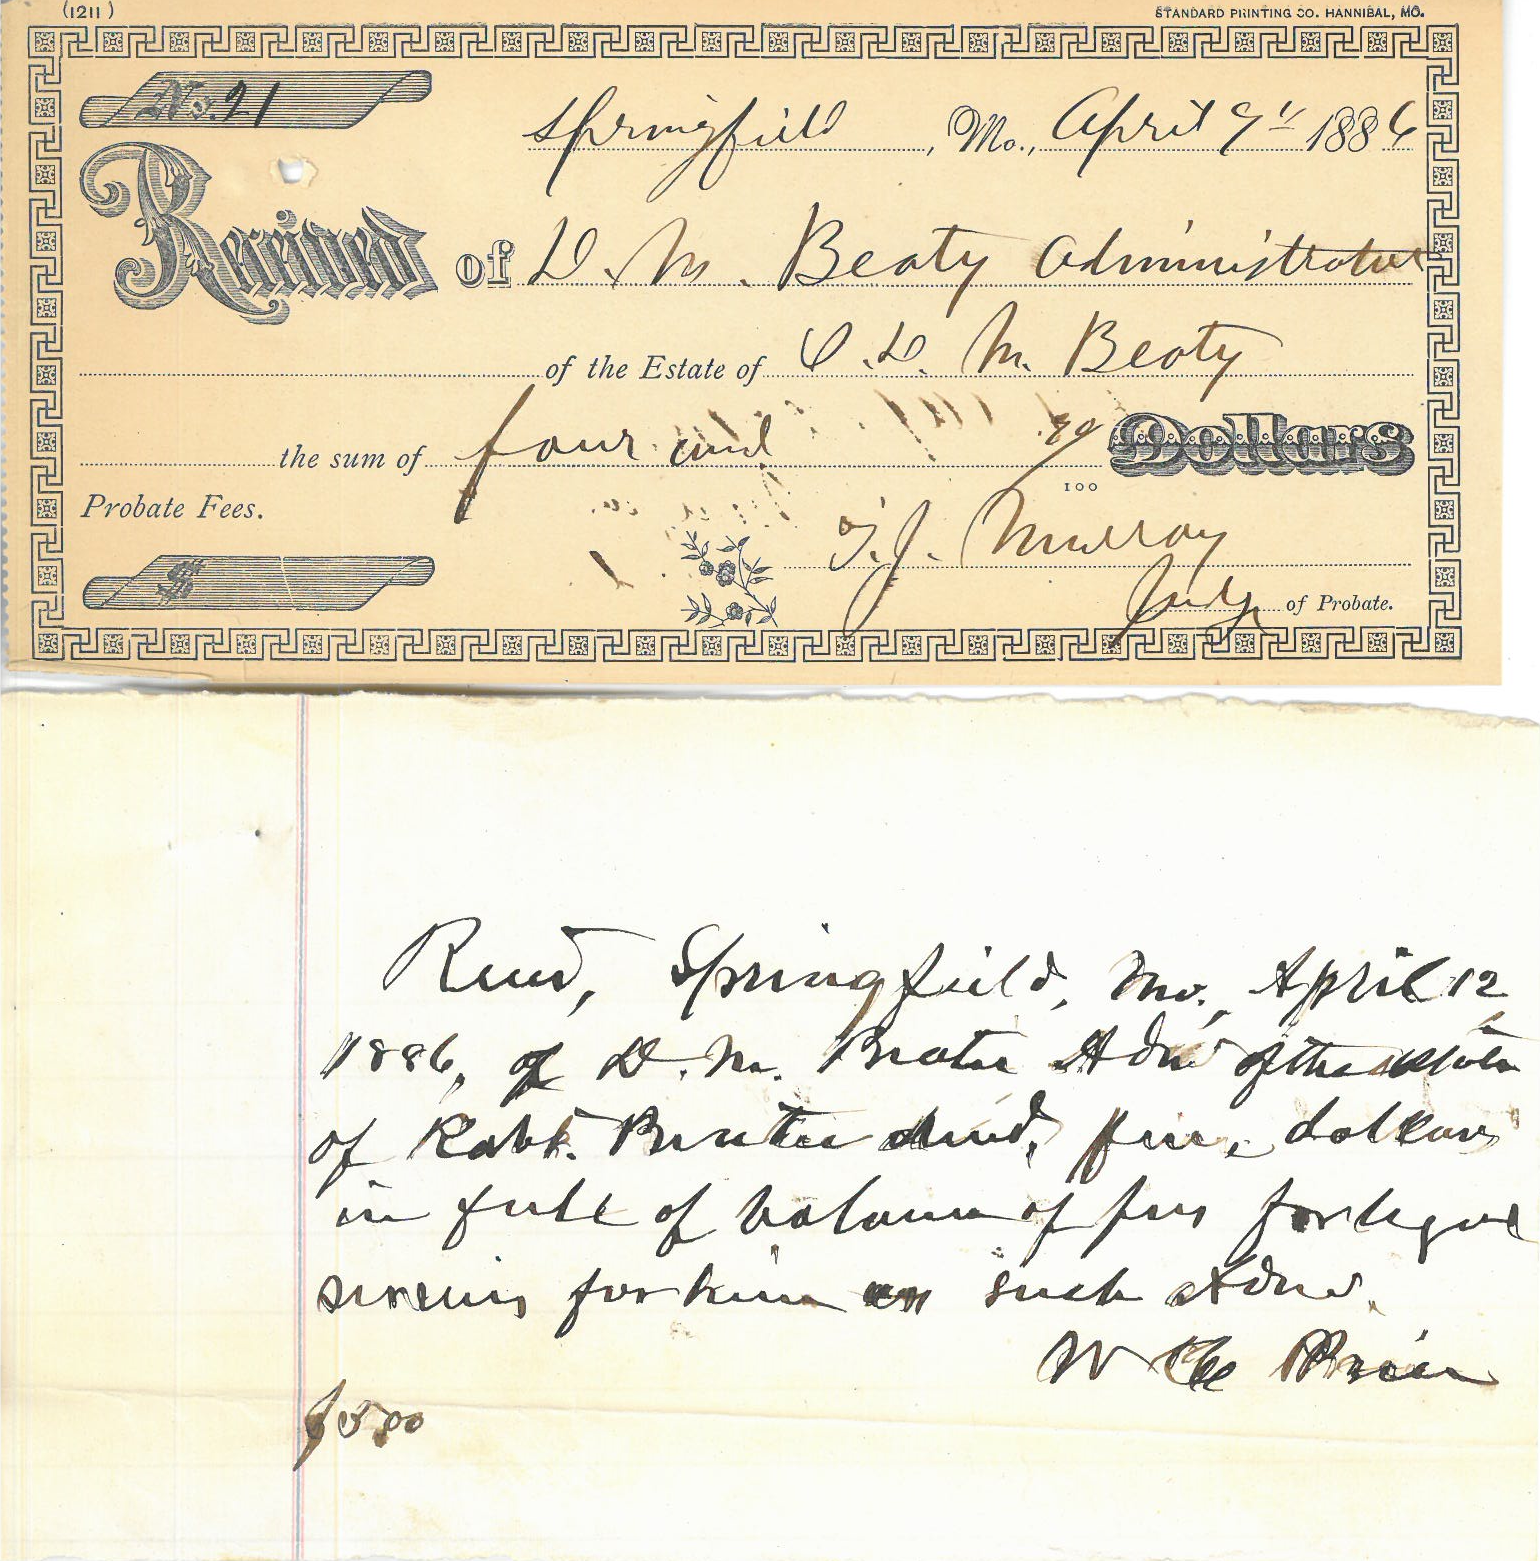 (1211)
STANDARD PRINTING CO. HANNIBAL, MO.
No. 21
Springfield, Mo., April 9th 1886
Received of D. M. Beaty Administrator
of the Estate of D. M. Beaty
the sum of four and 100 Dollars
Probate Fees.
$
T. J. Murray
Judge of Probate.
Recd, Springfield, Mo., April 12
1886, of D. M. Beatie Admr of the estate
of Robt. Beatie decd, five dollars
in full of balance of fees for legal
services for him as such Admr.
W Price
$5.00